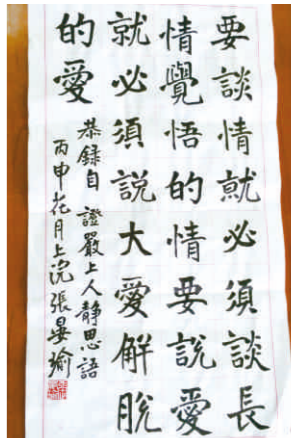 要談情就必須談長
情覺悟的情要說愛
就必須說大愛解脫
的愛
恭錄自 證嚴上人靜思語
丙申花月上浣張晏瑜